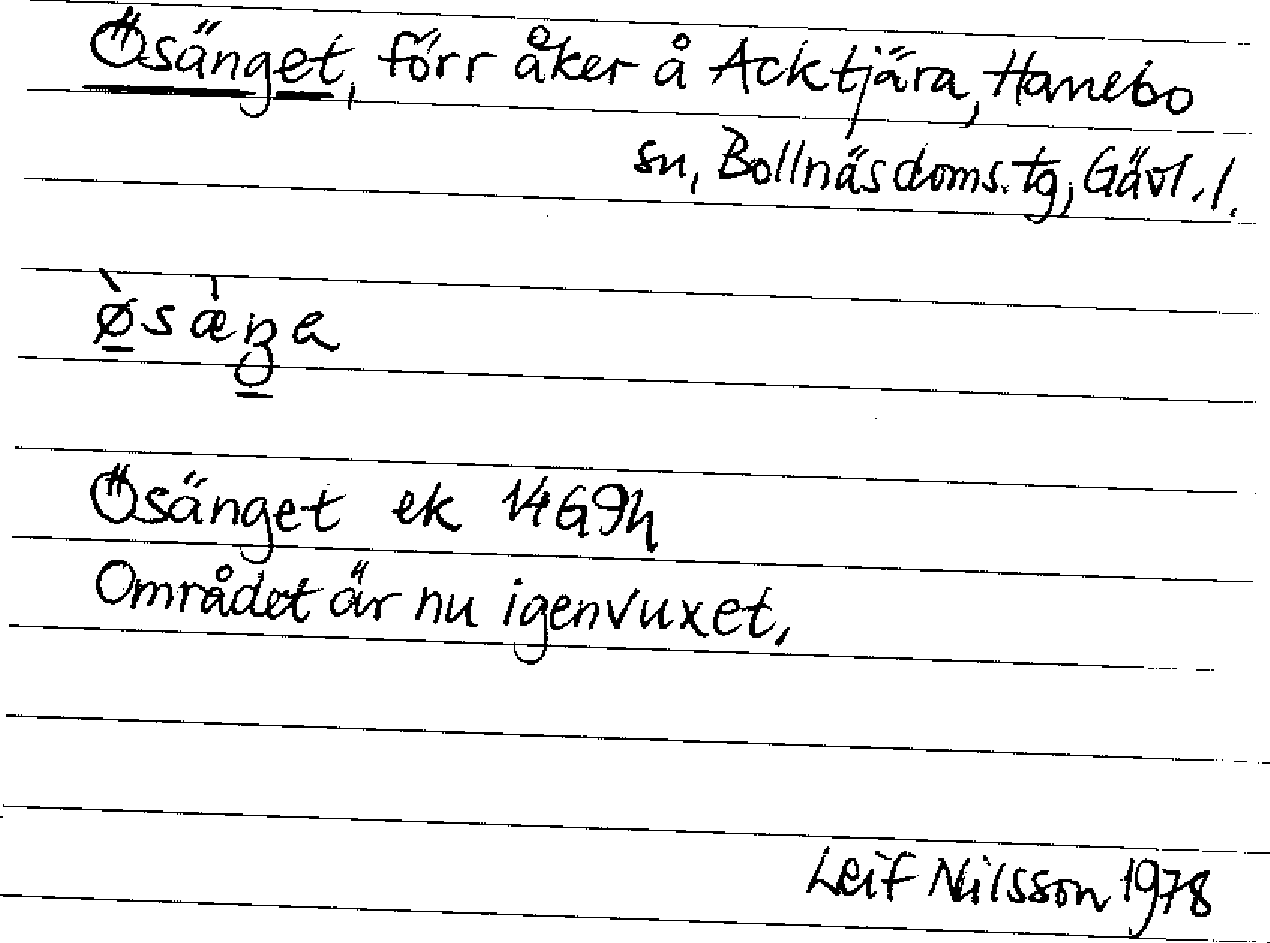 Ösänget, förr åker å Acktjära, Hanebo
sn, Bollnäs doms. tg, Gävl. l.
ø̀sæ̀ŋa
Ösänget ek 14G9h
Området är nu igenvuxet,
Leif Nilsson 1978